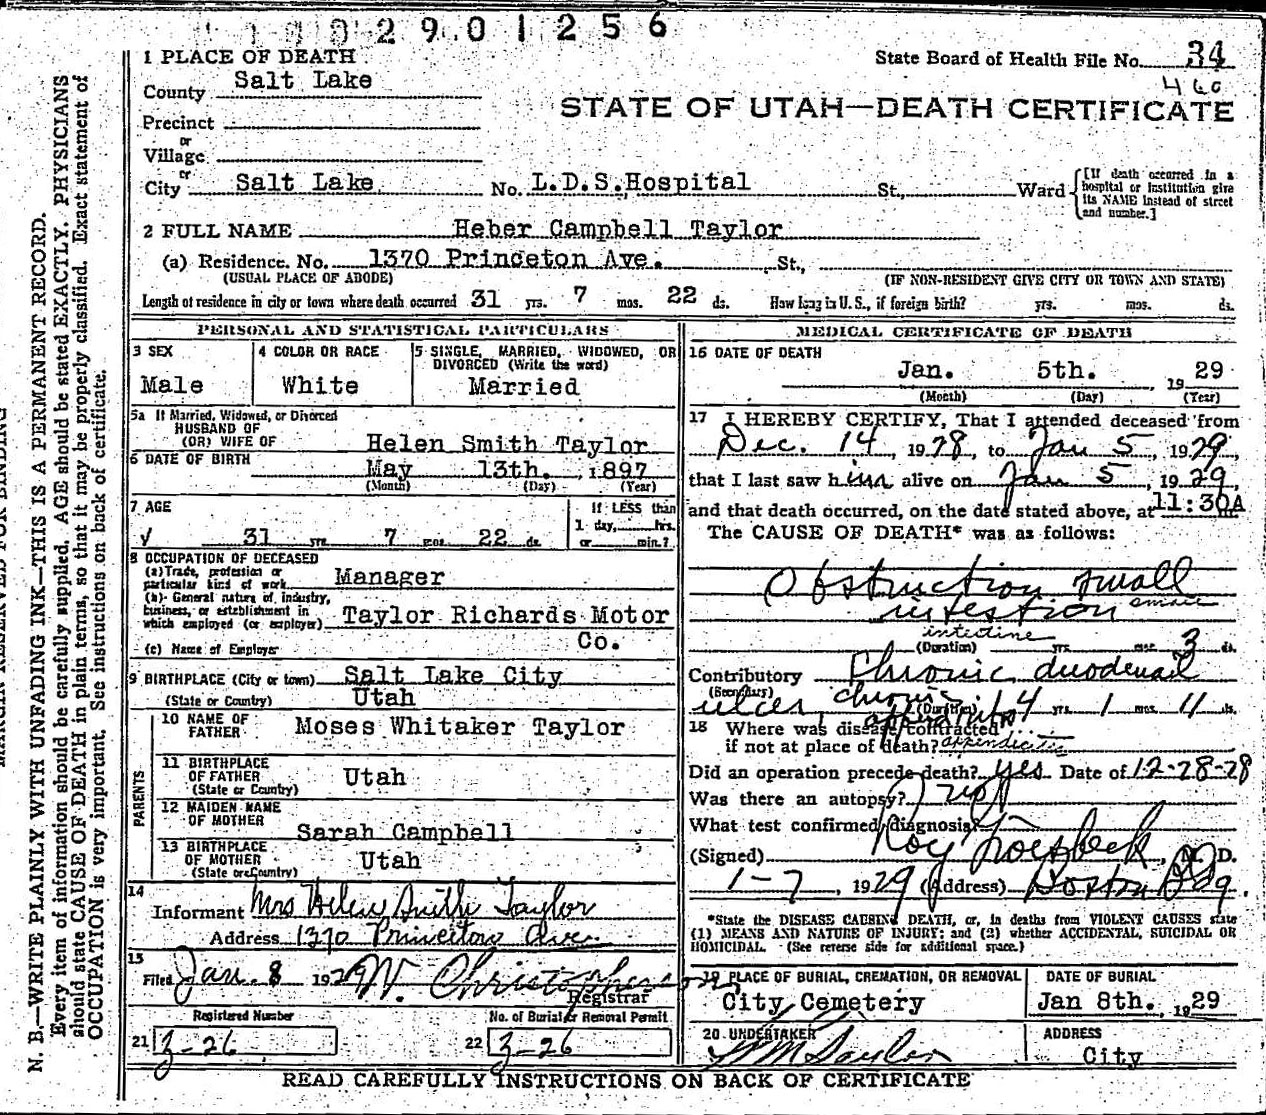 2901256
1 PLACE OF DEATH
State Board of Health File No. 34
460
County Salt Lake
STATE OF UTAH—DEATH CERTIFICATE
Precinct
or
Village
or
City Salt Lake No. L.D.S.Hospital St., Ward
[If death occurred in a hospital or institution give its NAME instead of street and number.]
2 FULL NAME Heber Campbell Taylor
(a) Residence. No. 1370 Princeton Ave. St.,
(USUAL PLACE OF ABODE) (IF NON-RESIDENT GIVE CITY OR TOWN AND STATE)
Length of residence in city or town where death occurred 31 yrs. 7 mos. 22 ds. How long in U. S., if foreign birth? yrs. mos. ds.
PERSONAL AND STATISTICAL PARTICULARS
3 SEX
Male
4 COLOR OR RACE
White
5 SINGLE, MARRIED, WIDOWED, OR
DIVORCED (Write the word)
Married
5a If Married, Widowed, or Divorced
HUSBAND OF
(OR) WIFE OF Helen Smith Taylor
6 DATE OF BIRTH May 13th. 1897
(Month) (Day) (Year)
7 AGE
31 yrs. 7 mos. 22 ds.
If LESS than
1 day, hrs.
or min.?
8 OCCUPATION OF DECEASED
(a) Trade, profession or
particular kind of work Manager
(b) General nature of industry,
business, or establishment in
which employed (or employer) Taylor Richards Motor
Co.
(c) Name of Employer
9 BIRTHPLACE (City or town) Salt Lake City
(State or Country) Utah
PARENTS
10 NAME OF
FATHER Moses Whitaker Taylor
11 BIRTHPLACE
OF FATHER Utah
(State or Country)
12 MAIDEN NAME
OF MOTHER
Sarah Campbell
13 BIRTHPLACE
OF MOTHER Utah
(State or Country)
14
Informant Mrs Helen Smith Taylor
Address 1370 Princeton Ave.
15
Filed Jan. 8 1929 W. Christopherson
Registrar
Registered Number
21 3-26
No. of Burial or Removal Permit
22 3-26
MEDICAL CERTIFICATE OF DEATH
16 DATE OF DEATH
Jan. 5th. 1929
(Month) (Day) (Year)
17 I HEREBY CERTIFY, That I attended deceased from
Dec. 14, 1928, to Jan 5, 1929,
that I last saw him alive on Jan 5, 1929,
and that death occurred, on the date stated above, at 11:30A m.
The CAUSE OF DEATH* was as follows:
Obstruction small
intestion small
intestine
(Duration) yrs. mos. 3 ds.
Contributory Chronic duodenail
(Secondary)
ulcer chronic
(Duration) 14 yrs. 1 mos. 11 ds.
18 Where was disease contracted
if not at place of death? appendicitis
Did an operation precede death? yes Date of 12-28-28
Was there an autopsy?
What test confirmed diagnosis?
(Signed) Roy Groesbeck, M. D.
1-7, 1929 (Address) Boston Bldg.
*State the DISEASE CAUSING DEATH, or, in deaths from VIOLENT CAUSES state
(1) MEANS AND NATURE OF INJURY; and (2) whether ACCIDENTAL, SUICIDAL OR
HOMICIDAL. (See reverse side for additional space.)
19 PLACE OF BURIAL, CREMATION, OR REMOVAL
City Cemetery
DATE OF BURIAL
Jan 8th. 1929
20 UNDERTAKER
Taylor
ADDRESS
City
READ CAREFULLY INSTRUCTIONS ON BACK OF CERTIFICATE
N. B.—WRITE PLAINLY WITH UNFADING INK—THIS IS A PERMANENT RECORD.
Every item of information should be carefully supplied. AGE should be stated EXACTLY. PHYSICIANS
should state CAUSE OF DEATH in plain terms, so that it may be properly classified. Exact statement of
OCCUPATION is very important. See instructions on back of certificate.